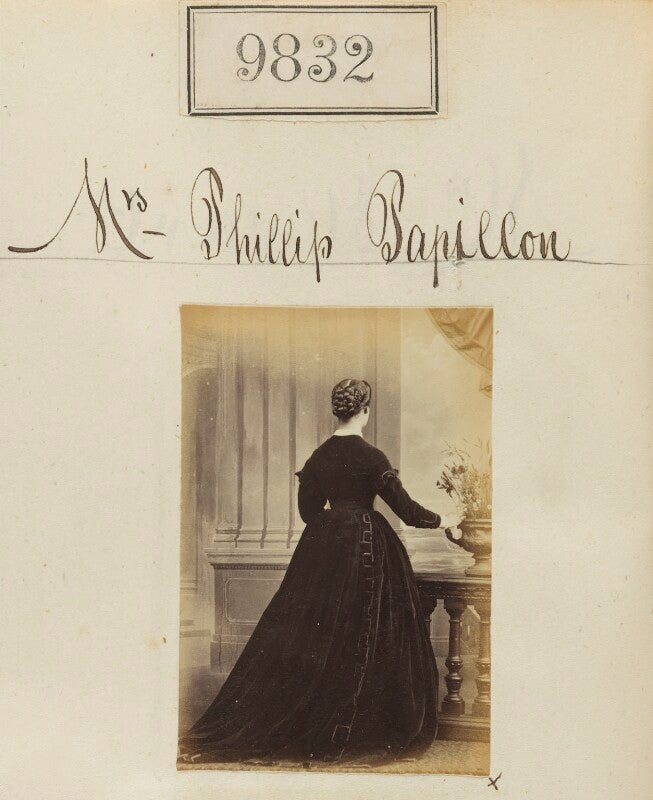 9832
Mrs Phillip Papillon
x